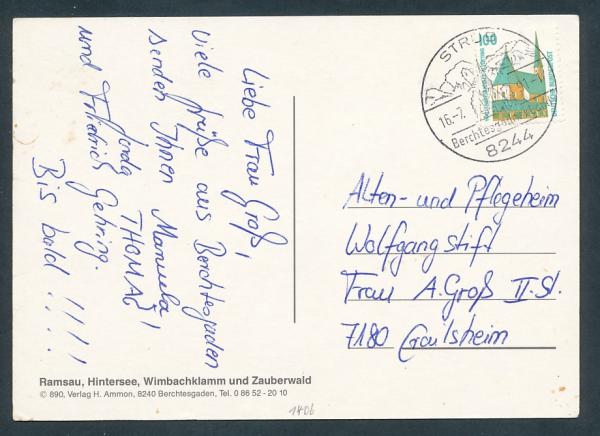 Liebe Frau Groß,
viele Grüße aus Berchtesgaden
senden Ihnen Manuela
THOMAS!
und Friedrich Gehring.
Bis bald !!!!
STRUB
100
16.-7.
Berchtesgaden
8244
Alten- und Pflegeheim
Wolfgangstift
Frau A. Groß II. St.
7180 Crailsheim
Ramsau, Hintersee, Wimbachklamm und Zauberwald
© 890, Verlag H. Ammon, 8240 Berchtesgaden, Tel. 0 86 52 - 20 10
1406